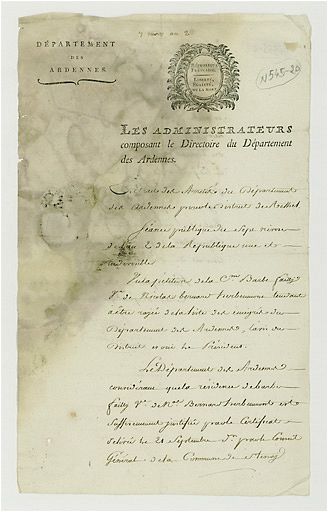 7 nivose an 2
DÉPARTEMENT
DES
ARDENNES.
RÉPUBLIQUE
FRANÇAISE.
LIBERTÉ,
ÉGALITÉ,
OU LA MORT
N545-20
LES ADMINISTRATEURS
composant le Directoire du Département
des Ardennes.
Extrait des Arrêtés du Département
des Ardennes
Séance publique du Sept nivose
de l'an 2 de la République une et
indivisible
Vu la petition de la Cne. Barbe failly
Ve. de Nicolas bernard tendant
a être rayée de la liste des emigrés du
Département des Ardennes, l'avis du
District et ouï le Président.
Le Département des Ardennes
considerant que la residence de barbe
failly Ve. de Nas. Bernard est
suffisamment justifiée par le Certificat
delivré le 21 Septembre Dr. par le Conseil
Général de la Commune de Stenay